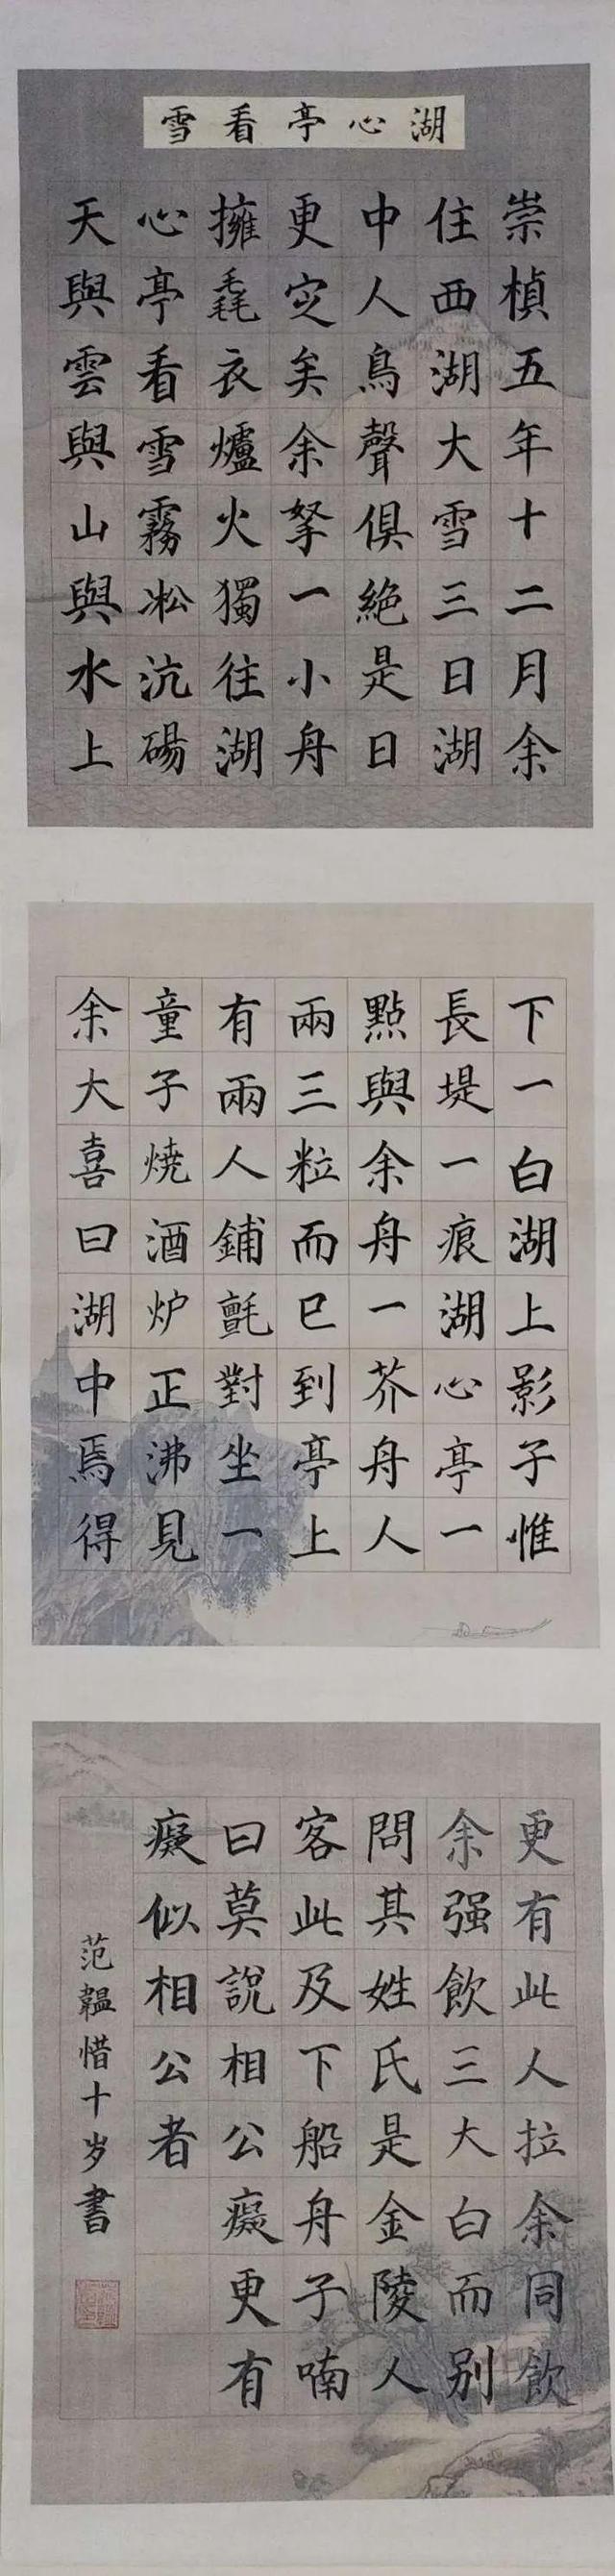 湖心亭看雪
崇楨五年十二月余
住西湖大雪三日湖
中人鳥聲俱絕是日
更定矣余拏一小舟
擁毳衣爐火獨往湖
心亭看雪霧凇沆碭
天與雲與山與水上
下一白湖上影子惟
長堤一痕湖心亭一
點與余舟一芥舟人
兩三粒而已到亭上
有兩人鋪氈對坐一
童子燒酒炉正沸見
余大喜曰湖中焉得
更有此人拉余同飲
余强飲三大白而别
問其姓氏是金陵人
客此及下船舟子喃
曰莫說相公癡更有
癡似相公者
范韞惜十岁書